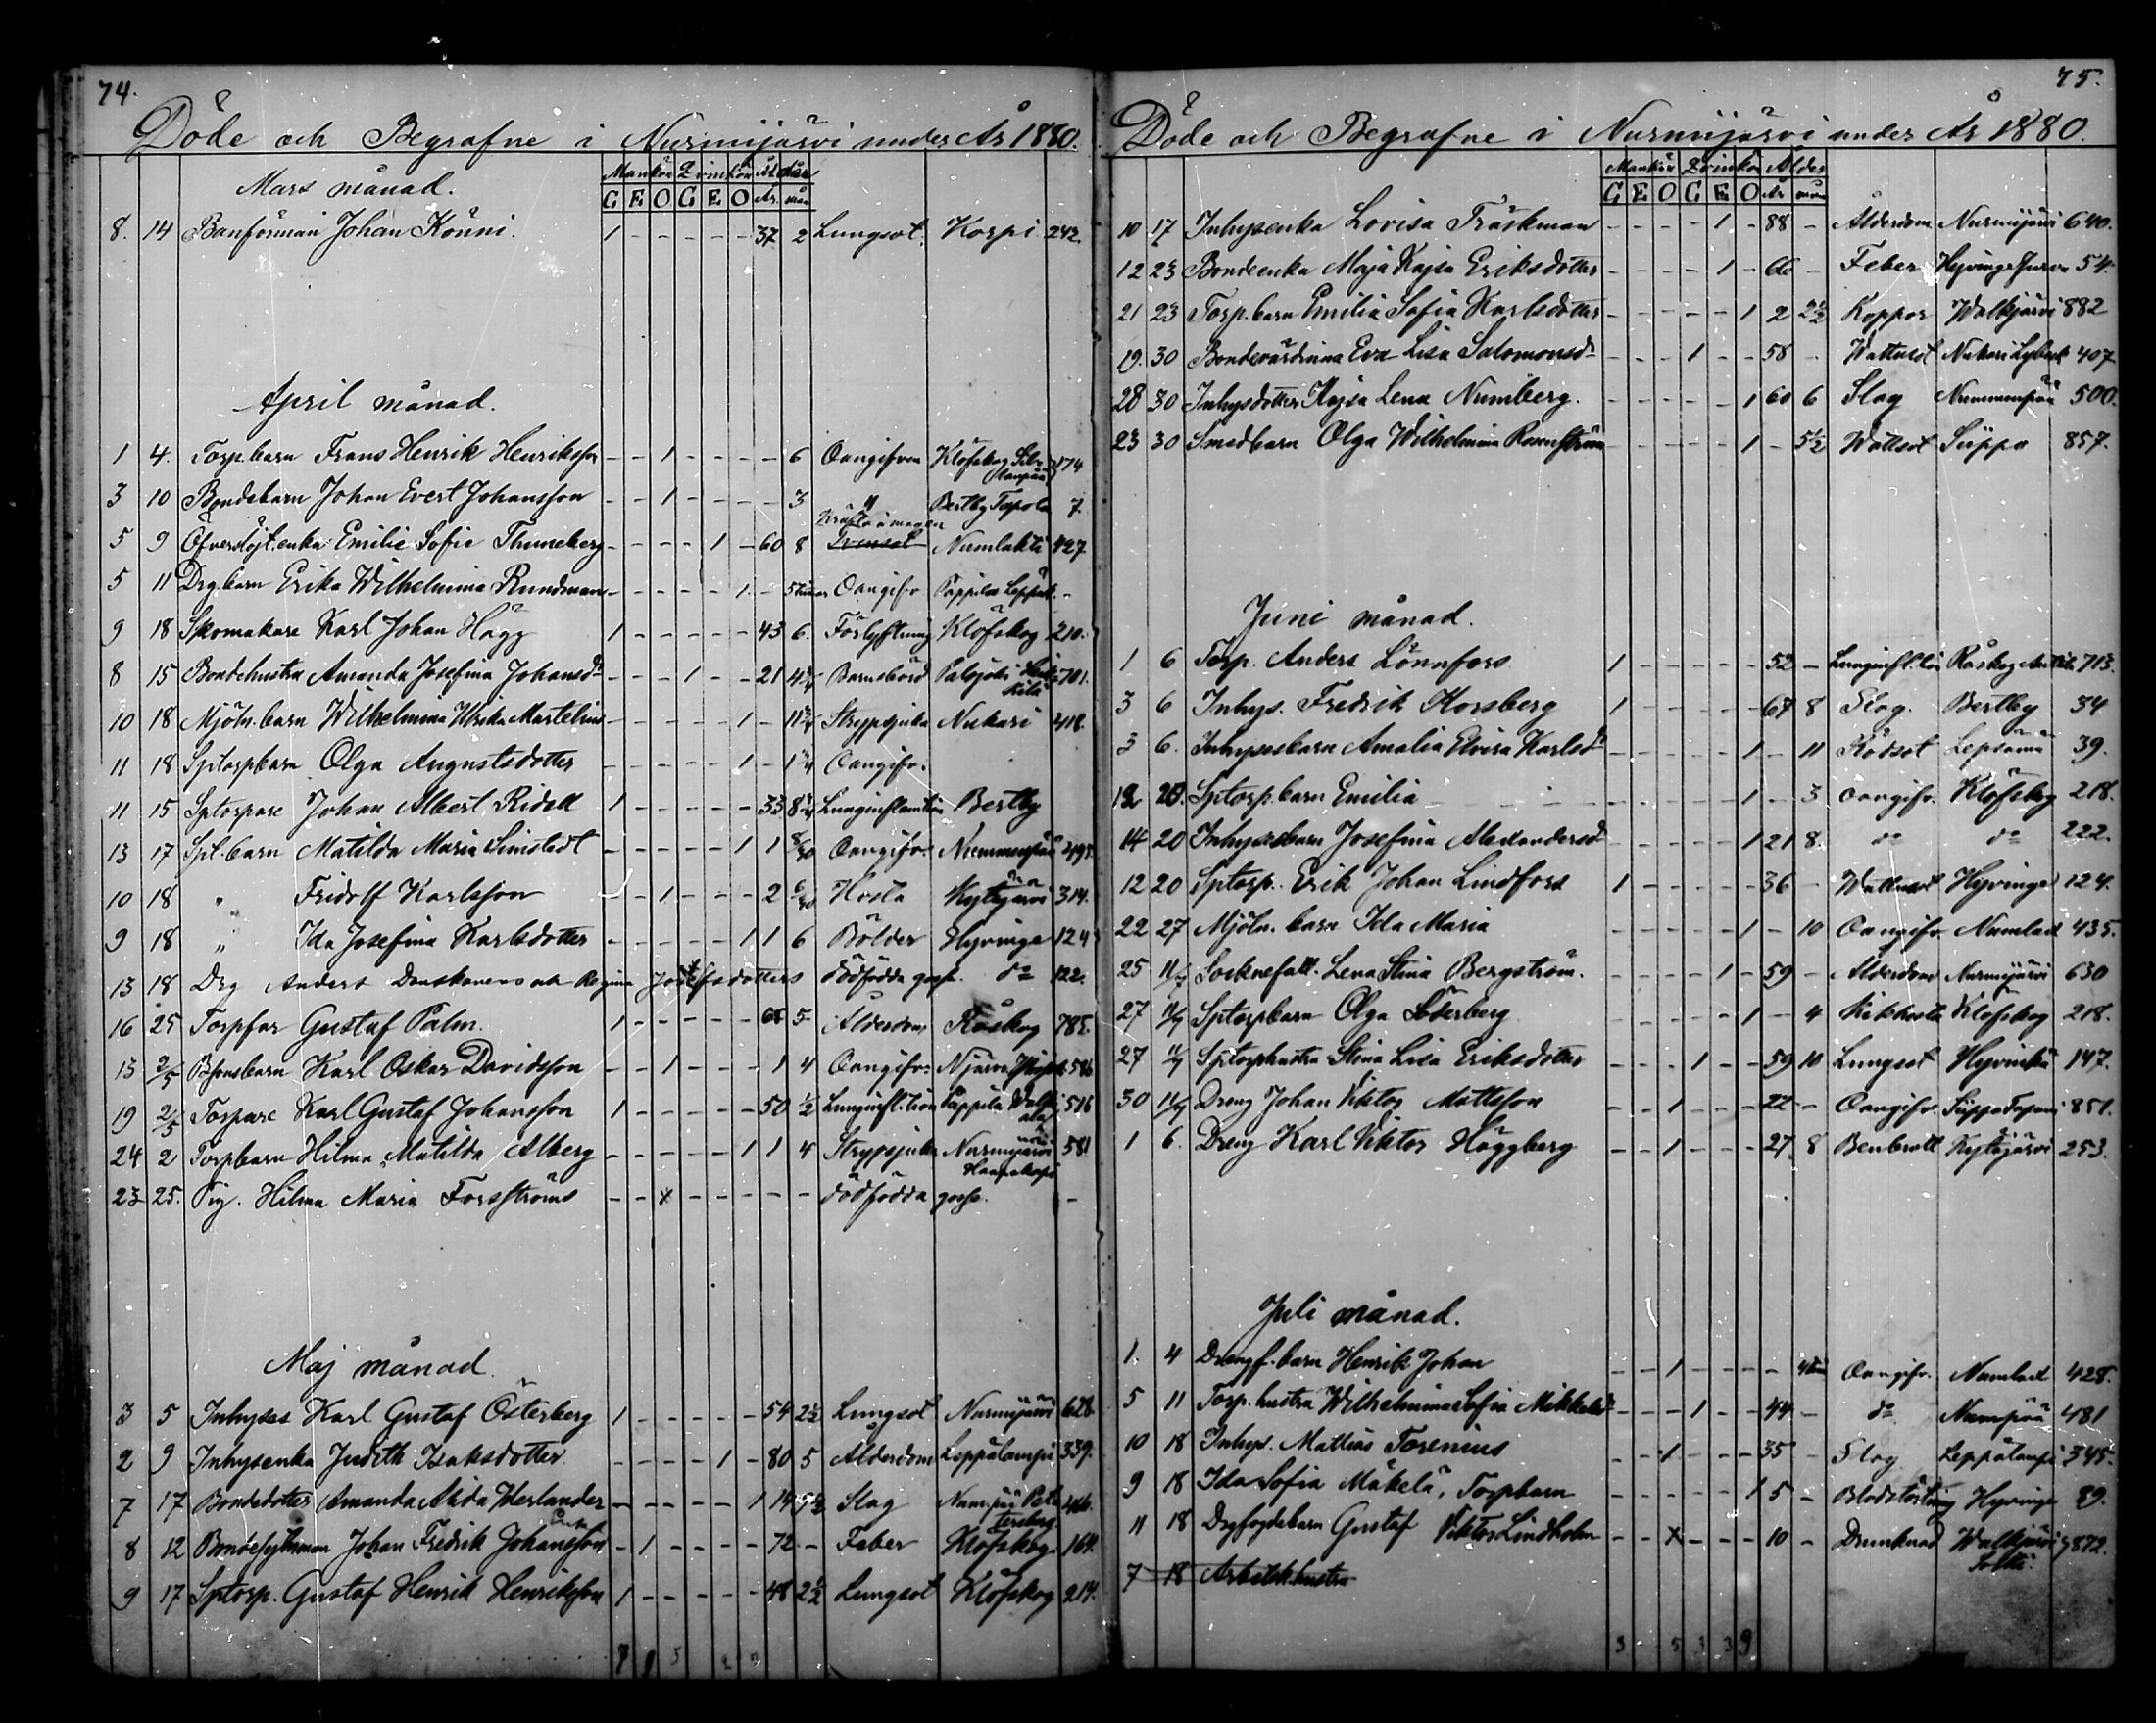 74.
Döde och Begrafne i Nurmijärvi under År 1880.
Mankön Qvinkön Ålder
G E O G E O År. mån
Mars månad.
8. 14 Banförman Johan Könni. 1 - - - - - 37 2 Lungsot. Korpi 242.
April månad.
1 4. Torp.barn Frans Henrik Henriksson - - 1 - - - - 6 Oangifven Klöfskog 174
3 10 Bondebarn Johan Evert Johansson - - 1 - - - - 3 " Bertby Tapola 7.
5 9 Öfverstlöjt.enka Emilie Sofie Thuneberg - - - - 1 - 60 8 Kräfta i magen Numlakti 427
5 11 Drg.barn Erika Wilhelmina Rundman - - - - - 1 - 5 timmar Oangifv Pappilas -
9 18 Skomakare Karl Johan Hägg 1 - - - - - 43 6. Förlyftning Klöfskog 210.
8 15 Bondehustru Amanda Josefina Johansdr - - - 1 - - 21 4 3/4 Barnsbörd Palojoki Heikkilä 701.
10 18 Mjöln.barn Wilhelmina Ulrika Martelius - - - - - 1 - 11 3/4 Strypsjuka Nukari 418.
11 18 Sptorpbarn Olga Augustsdotter - - - - - 1 - 1 3/4 Oangifv.
11 15 Sptorpare Johan Albert Ridell 1 - - - - - 33 8 3/4 Lunginflamation Bertby
13 17 Spt.barn Matilda Maria Simstedt - - - - - 1 1 8/30 Oangifv. Nummenpää 495.
10 18 " Fridolf Karlsson - - 1 - - - 2 6/30 Hosta Kytäjärvi 314.
9 18 " Ida Josefina Karlsdotter - - - - - 1 1 6 Bölder Hyvinge 124
13 18 Drg Anders Danskanens och Regina Josefsdotters dödfödda gosse. do 122.
16 25 Torpfar Gustaf Palm. 1 - - - - - 65 5 Ålderdom Råskog 785.
13 2/5 Bonsbarn Karl Oskar Davidsson - - 1 - - - 1 4 Oangifv. Njärvi 586
19 2/5 Torpare Karl Gustaf Johansson 1 - - - - - 50 1/2 Lunginfl.tion Pappila 516
24 2 Torpbarn Hilma Matilda Alberg - - - - - 1 1 4 Strypsjuka Nurmijärvi 581
23 25. Pig. Hilma Maria Forsströms - - x - - - - - dödfödda gosse. -
Maj månad.
3 5 Inhyses Karl Gustaf Österberg 1 - - - - - 54 2 1/2 Lungsot Nurmijärvi 628
2 9 Inhysenka Judith Isaksdotter - - - - 1 - 80 5 Ålderdom Leppälampi 339.
7 17 Bondedotter Amanda Alida Herlander - - - - - 1 14 5 1/2 Slag Num.pää Petersberg 466.
8 12 Bondesytinman Johan Fredrik Johansson - 1 - - - - 72 - Feber Klöfskog 164.
9 17 Sptorp. Gustaf Henrik Henriksson 1 - - - - - 48 2 1/2 Lungsot Klöfskog 214.
75.
Döde och Begrafne i Nurmijärvi under År 1880.
Mankön Qvinkön Ålder
G E O G E O År mån
10 17 Inhysenka Lovisa Träskman - - - - 1 - 88 - Ålderdom Nurmijärvi 640.
12 23 Bondeenka Maja Kajsa Eriksdotter - - - - 1 - 66 - Feber Hyvinge 54.
21 23 Torp.barn Emilia Sofia Karlsdotter - - - - - 1 2 2 1/2 Koppor Walkjärvi 882
19. 30 Bondevärdinna Eva Lisa Salomonsdr - - - 1 - - 58 - Wattusot Nukari 407
28 30 Inhysdotter Kajsa Lena Numberg. - - - - - 1 60 6 Slag Nummenpää 500.
23 30 Smedbarn Olga Wilhelmina Rosenström - - - - - 1 - 5 1/2 Wattsot Siippo 857.
Juni månad.
1 6 Torp. Anders Lönnfors 1 - - - - - 52 - Lunginfl.tion Råskog Anttila 713.
3 6 Inhys. Fredrik Korsberg 1 - - - - - 67 8 Slag. Bertby 34
3 6. Inhysesbarn Amalia Elvira Karlsdr - - - - - 1 - 11 Rödsot Lepsämä 39.
12 20. Sptorp.barn Emilia - - - - - 1 - 3 Oangifv. Klöfskog 218.
14 20 Inhysesbarn Josefina Alexandersdr - - - - - 1 21 8. do do 222.
12 20 Sptorp. Erik Johan Lindfors 1 - - - - - 36 - Wattusot Hyvinge 124.
22 27 Mjöln. barn Ida Maria - - - - - 1 - 10 Oangifv. Numlad 435.
25 11/7 Socknefatt. Lena Stina Bergström. - - - - 1 - 59 - Ålderdom Nurmijärvi 630
27 11/7 Sptorpbarn Olga Söderberg - - - - - 1 - 4 Kikhosta Klöfskog 218.
27 11/7 Sptorphustru Stina Lisa Eriksdotter - - - 1 - - 59 10 Lungsot Hyvinkä 147.
30 11/7 Dreng Johan Viktor Mattsson - - 1 - - - 22 - Oangifv. Siippo 851.
1 6. Dreng Karl Viktor Häggberg - - 1 - - - 27 8 Benbrott Kytäjärvi 253.
Juli månad.
1. 4 Drengf.barn Henrik Johan - - 1 - - - - Oangifv. Numlad 428.
5 11 Torp.hustru Wilhelmina Sofia Mikkelsdr - - - 1 - - 44 - do Numpää 481
10 18 Inhys. Mattias Torenius - - 1 - - - 35 - Slag Leppälampi 345.
9 18 Ida Sofia Mäkelä, Torpbarn - - - - - 1 5 - Blodstörtning Hyvinge 89.
11 18 Drgfogdebarn Gustaf Viktor Lindholm - - x - - - 10 - Drunknad Walkjärvi 872.
7 18 Arbetsk.hustru
3 - 5 3 3 9